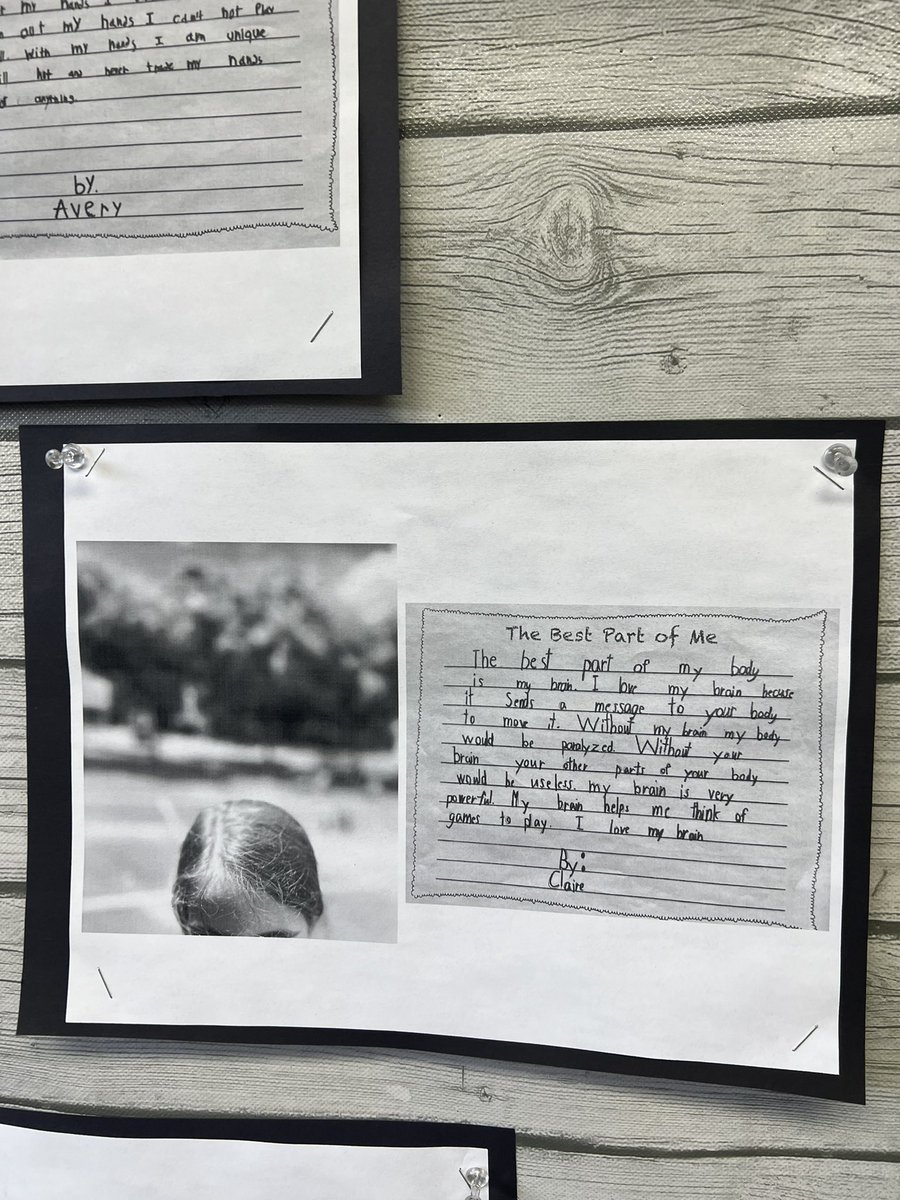 my hands
out my hands I can't not play
with my hands I am unique
not and never trade my hands
anything.
by.
Avery
The Best Part of Me
The best part of my body
is my brain. I love my brain because
it Sends a message to your body
to move it. Without my brain my body
would be paralyzed. Without your
brain your other parts of your body
would be useless. my brain is very
powerful. My brain helps me think of
games to play. I love my brain
By:
Claire